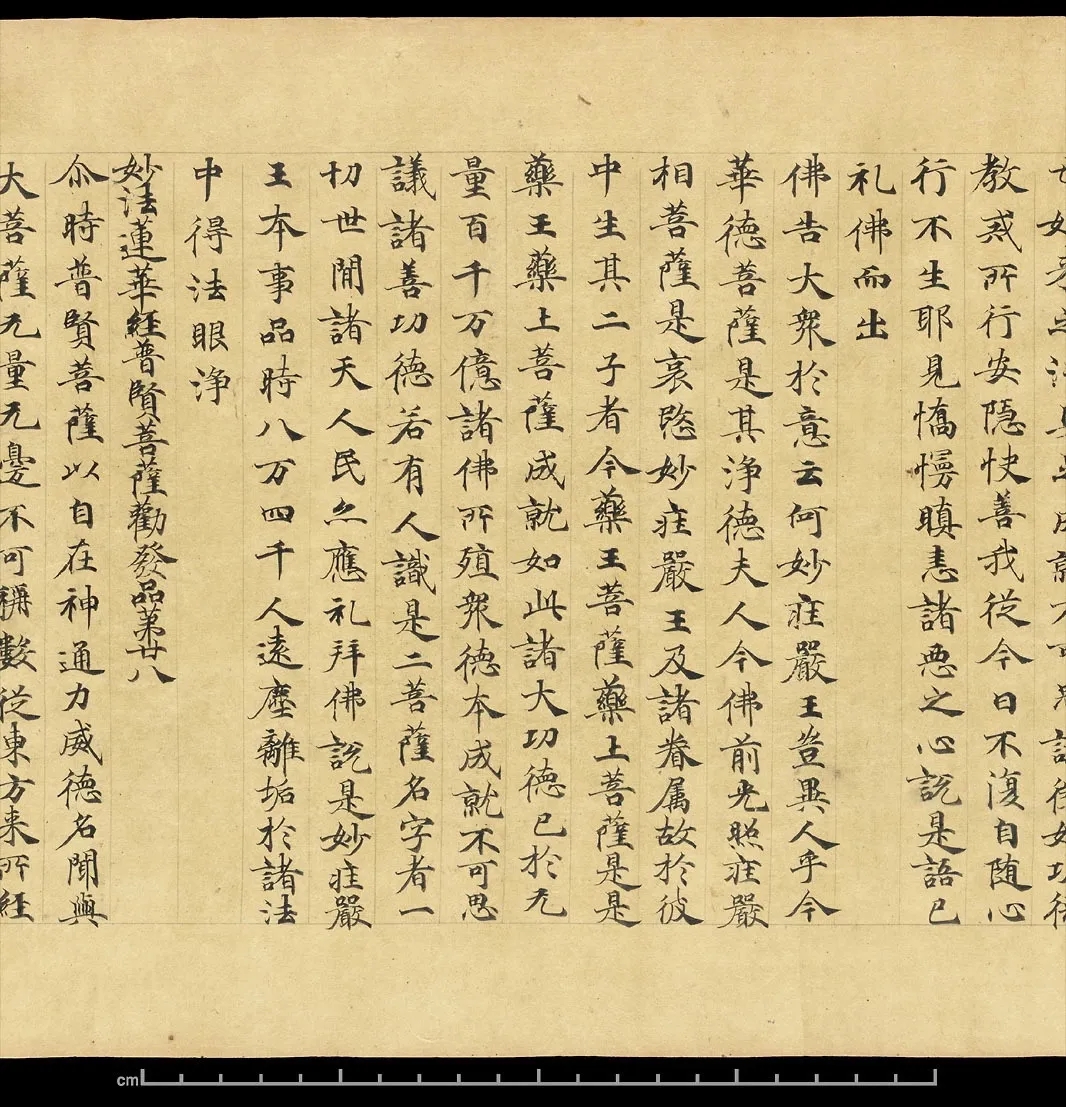 教戒所行安隱快善我從今日不復自随心
行不生耶見憍慢瞋恚諸悪之心說是語已
礼佛而出
佛告大衆於意云何妙莊嚴王豈異人乎今
華德菩薩是其浄德夫人今佛前光照莊嚴
相菩薩是哀愍妙莊嚴王及諸眷属故於彼
中生其二子者今藥王菩薩藥上菩薩是是
藥王藥上菩薩成就如此諸大功德已於无
量百千万億諸佛所殖衆德本成就不可思
議諸善功德若有人識是二菩薩名字者一
切世間諸天人民亦應礼拜佛說是妙莊嚴
王本事品時八万四千人遠塵離垢於諸法
中得法眼浄
妙法蓮華經普賢菩薩勸發品第廿八
尒時普賢菩薩以自在神通力威德名聞與
大菩薩无量无邊不可稱數從東方来所經
cm